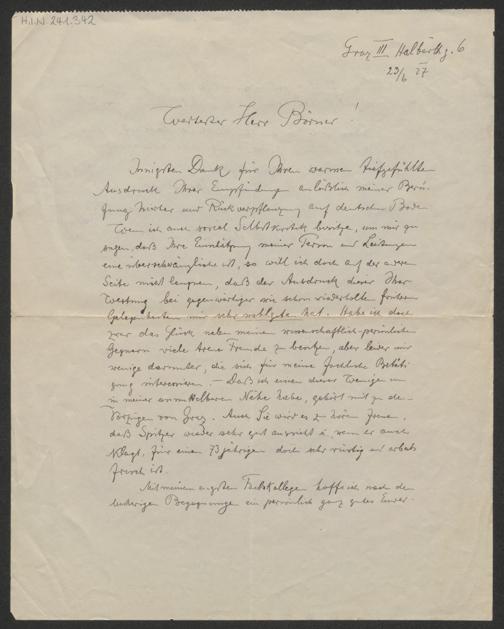 H.I.N. 241.342
Graz III Halbärthg. 6
23/6 27
Wertester Herr Börner!
Innigsten Dank für Ihren warmen tiefgefühlten
Ausdruck Ihrer Empfindung anläßlich meiner Beru-
fung hierher und Rückverpflanzung auf deutschen Boden
Wenn ich auch soviel Selbstkritik besitze, um mir zu
sagen, daß Ihre Einschätzung meiner Person und Leistungen
eine überschwängliche ist, so will ich doch auf der anderen
Seite nicht leugnen, daß der Ausdruck dieser Ihrer
Wertung bei gegenwärtiger wie schon wiederholter früherer
Gelegenheiten mir sehr wohlgetan hat. Habe ich doch
zwar das Glück neben meinen wissenschaftlich-persönlichen
Gegnern viele treue Freunde zu besitzen, aber leider nur
wenige darunter, die sich für meine fachliche Betäti-
gung interessieren. – Daß ich einen dieser Wenigen nun
in meiner unmittelbaren Nähe habe, gehört mit zu den
Vorzügen von Graz. Auch Sie wird es zu hören freuen,
daß Spitzer wieder sehr gut aussieht u. wenn er auch
klagt, für einen 73jährigen doch sehr rüstig und arbeits
frisch ist.
Mit meinen engsten Fachkollegen hoffe ich nach den
bisherigen Begegnungen ein persönlich ganz gutes Einver-